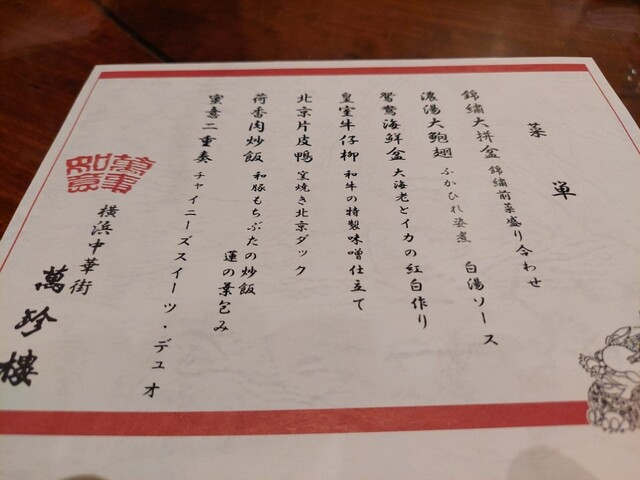 菜單
錦繡大拼盆 錦繡前菜盛り合わせ
濃湯大鮑翅 ふかひれ姿煮 白湯ソース
鴛鴦海鮮盆 大海老とイカの紅白作り
皇室牛仔柳 和牛の特製味噌仕立て
北京片皮鴨 窯焼き北京ダック
荷香肉炒飯 和豚もちぶたの炒飯
蓮の葉包み
蜜意二重奏 チャイニーズスイーツ・デュオ
萬事
如意
横浜中華街
萬珍樓